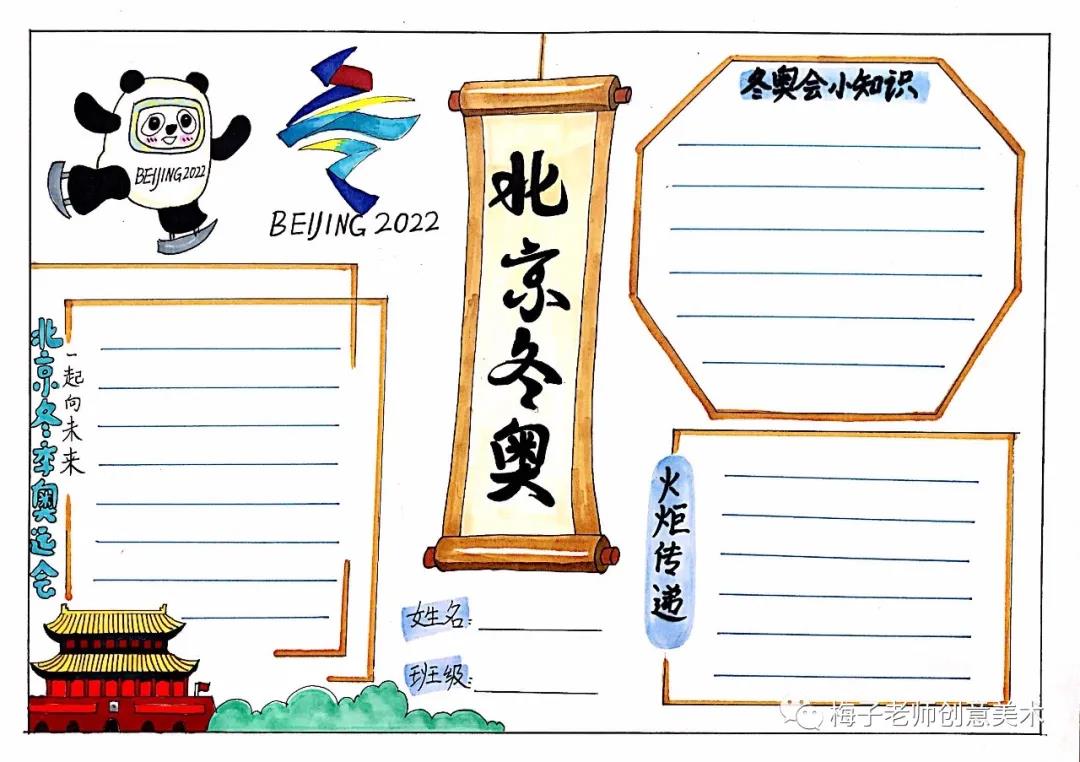 BEIJING2022
BEIJING 2022
北京冬奥
冬奥会小知识
北京冬季奥运会
一起向未来
火炬传递
姓名:
班级:
梅子老师创意美术